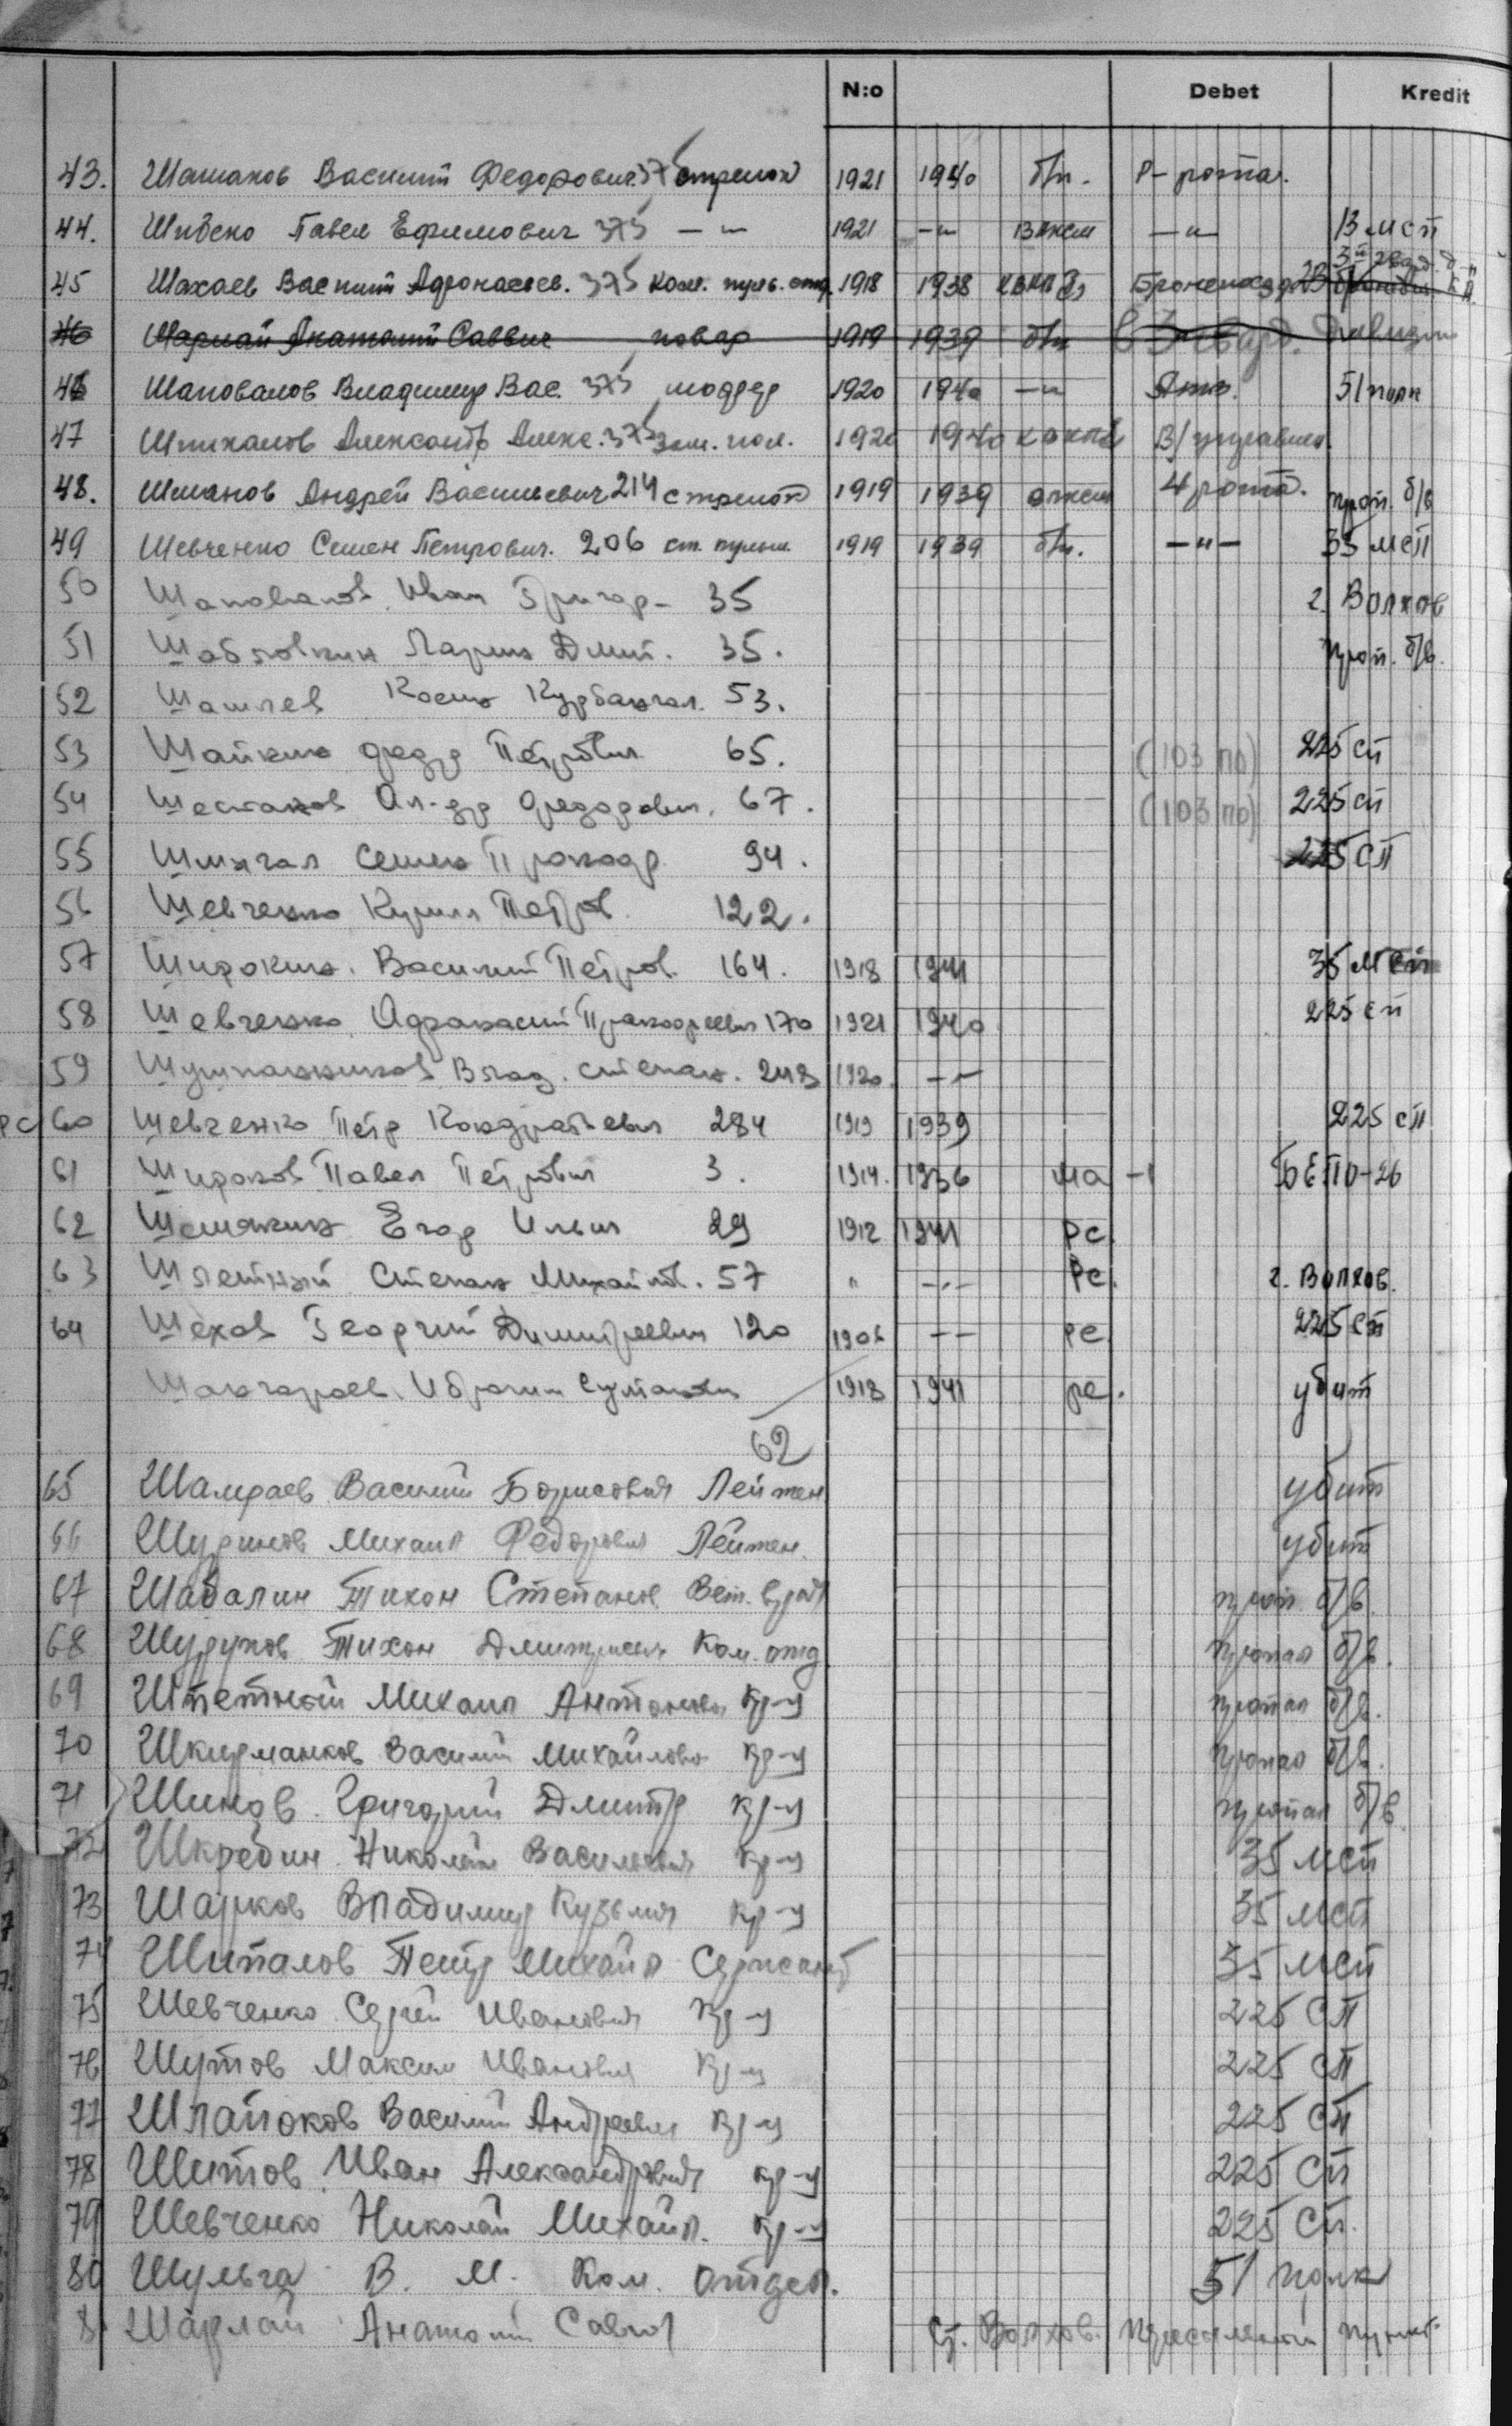 N:o Debet Kredit
43. Шашаков Василий Федорович 375 стрелок 1921 1940 б/п. Р-рота.
44. Шибеко Павел Ефимович 375 —"— 1921 —"— ВЛКСМ —"— 13 мсп
45 Шахаев Василий Афонасьев. 375 ком. пуль. отд. 1918 1938
46 Шарлай Анатолий Саввич повар 1919 1939 б/п в 3 гвард. дивизии
46 Шаповалов Владимир Вас. 375 шофер 1920 1940 —"— 51 полк
47 Александр Алекс. 375 зам. пол. 1920 1940 В/управлен.
48. Шманов Андрей Васильевич 214 стрелок 1919 1939 влксм 4 рота. проп. б/в
49 Шевченко Семен Петрович. 206 ст. пульм. 1919 1939 б/п. —"— 35 мсп
50 Шаповалов Иван Григор- 35 г. Волхов
51 Дмит. 35. проп. б/в.
52 Курбангал. 53.
53 Шайкин Федор Петрович 65. (103 по) 225 сп
54 Шестаков Ал-др Федорович. 67. (103 по) 225 сп
55 Семен Прокоф. 94. 225 СП
56 Шевченко Кирилл Петров. 122.
57 Широкин. Василий Петров. 164. 1918 1941 35 мсп
58 Шевченко Афанасий 170 1921 1940 225 сп
59 Влад. Степан. 248 1920. —"—
рс 60 Шевченко Петр Кондратьевич 284 1919 1939 225 сп
61 Широков Павел Петрович 3. 1914. 1936 -1 БЕПО-26
62 Шемякин Егор Ильич 29 1912 1941 рс
63 Степан Михайлов. 57 " —"— рс. г. Волхов.
64 Шехов Георгий Димитриевич 120 1906 —"— рс 225 сп
Шангараев Ибрагим 1918 1941 рс. убит
62
65 Шамраев Василий Борисович Лейтен. убит
66 Шуринов Михаил Федорович Лейтен. убит
67 Шабалин Тихон Степанов. Вет. врач проп б/в.
68 Шурупов Тихон Дмитриевич Ком. отд. пропал б/в.
69 Михаил Антонович Кр-ц пропал б/в.
70 Шкурманков Василий Михайлович Кр-ц пропал б/в.
71 Григорий Дмитр кр-ц пропал б/в.
72 Шкребин Николай Васильевич Кр-ц 35 мсп
73 Шарков Владимир Кузьмич кр-ц 35 мсп
74 Шипалов Петр Михайл Сержант 35 мсп
75 Шевченко Сергей Иванович Кр-ц 225 СП
76 Шутов Максим Иванович Кр-ц 225 СП
77 Шлапоков Василий Андреевич Кр-ц 225 СП
78 Шитов Иван Александрович кр-ц 225 СП
79 Шевченко Николай Михайл. кр-ц 225 СП.
80 Шульга В. М. Ком. отдел. 51 полк
8 Шарлай Анатолий Савич Ст. Волхов. пункт.